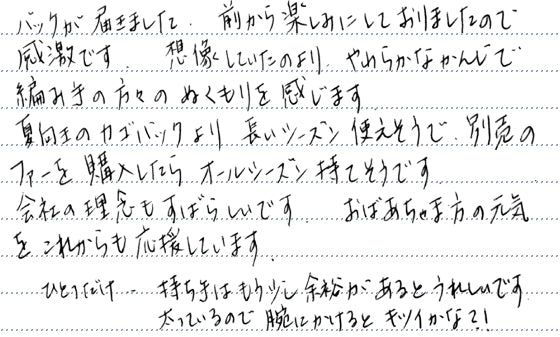 バックが届きました。前から楽しみにしておりましたので
感激です。想像していたのより、やわらかなかんじで
編み手の方々のぬくもりを感じます
夏向きのカゴバックより長いシーズン使えそうで、別売の
ファーを購入したらオールシーズン持てそうです
会社の理念もすばらしいです おばあちゃま方の元気
をこれからも応援しています。
ひとつだけ… 持ち手はもう少し余裕があるとうれしいです
太っているので腕にかけるとキツイかな?!